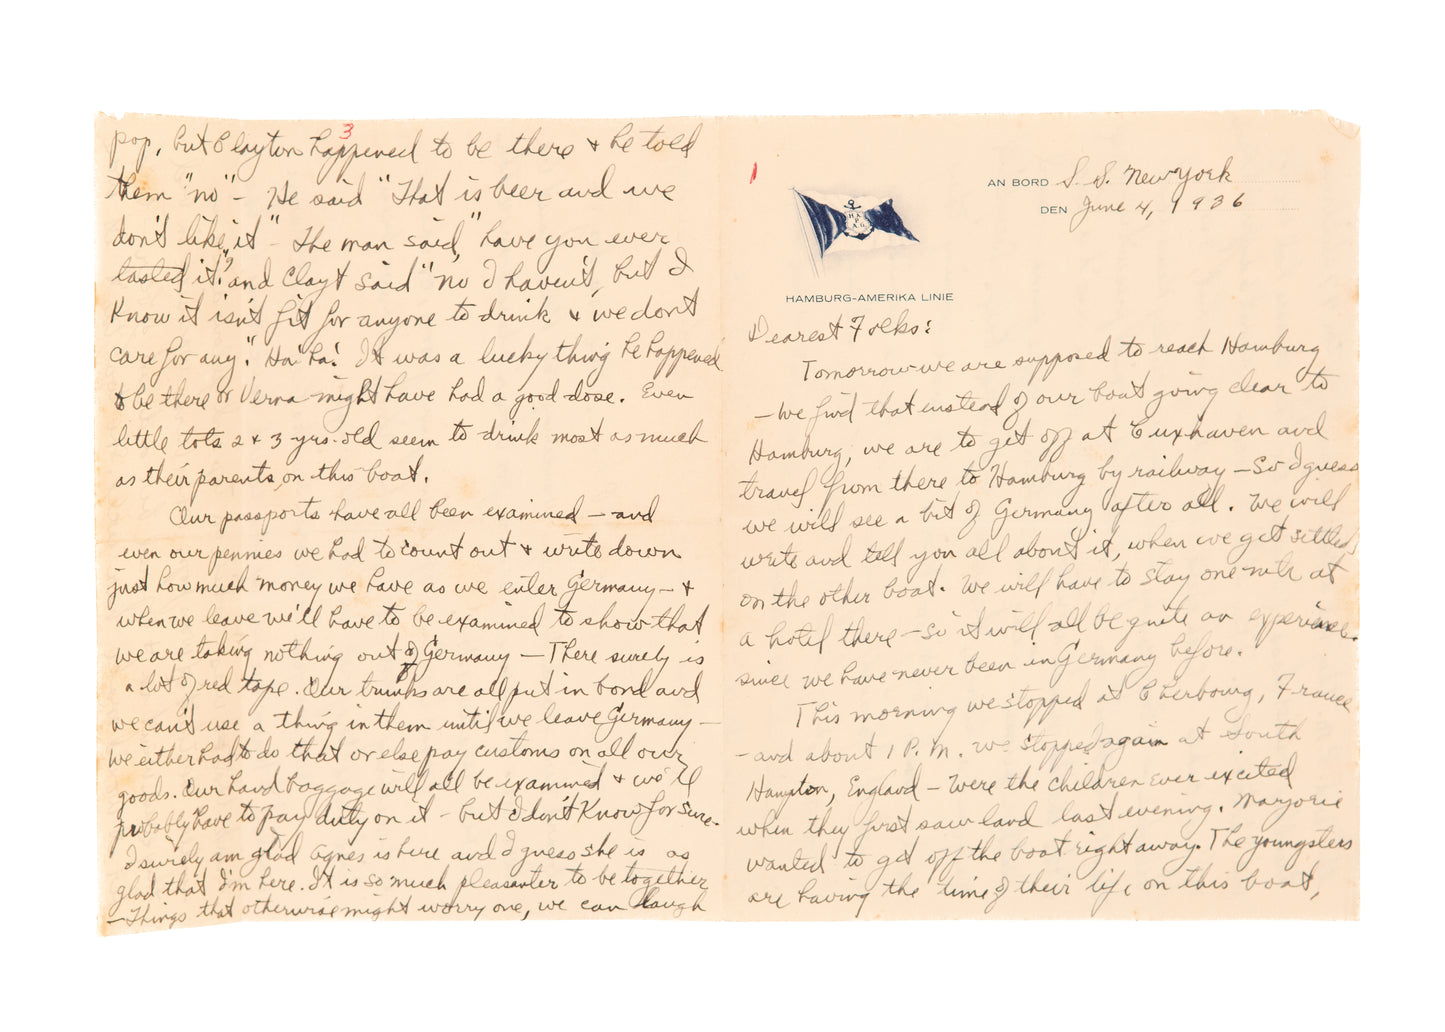 3
pop, but Clayton happened to be there & he told
them "no" - He said "That is beer and we
don't like it" - The man said, "have you ever
tasted it?" and Clayt said "no I haven't, but I
Know it isn't fit for anyone to drink & we don't
care for any." Ha! ha! It was a lucky thing he happened
to be there or Verna might have had a good dose. Even
little tots 2 & 3 yrs. old seem to drink most as much
as their parents, on this boat.
Our passports have all been examined - and
even our pennies we had to count out & write down
just how much money we have as we enter Germany - &
when we leave we'll have to be examined to show that
we are taking nothing out of Germany - There surely is
a lot of red tape. Our trunks are all put in bond and
we can't use a thing in them until we leave Germany -
we either had to do that or else pay customs on all our
goods. Our hand baggage will all be examined & we'll
probably have to pay duty on it - but I don't Know for sure.
I surely am glad Agnes is here and I guess she is as
glad that I'm here. It is so much pleasanter to be together
- Things that otherwise might worry one, we can laugh
1
AN BORD S. S. New York
DEN June 4, 1936
HAPAG
HAMBURG-AMERIKA LINIE
Dearest Folks:
Tomorrow we are supposed to reach Hamburg
- We find that instead of our boat going clear to
Hamburg, we are to get off at Cuxhaven and
travel from there to Hamburg by railway - So I guess
we will see a bit of Germany after all. We will
write and tell you all about it, when we get settled
on the other boat. We will have to stay one nite at
a hotel there - so it will all be quite an experience.
since we have never been in Germany before.
This morning we stopped at Cherbourg, France
- and about 1 P.M. we stopped again at South
Hampton, England - Were the children ever excited
when they first saw land last evening. Marjorie
wanted to get off the boat right away. The youngsters
are having the time of their life on this boat,